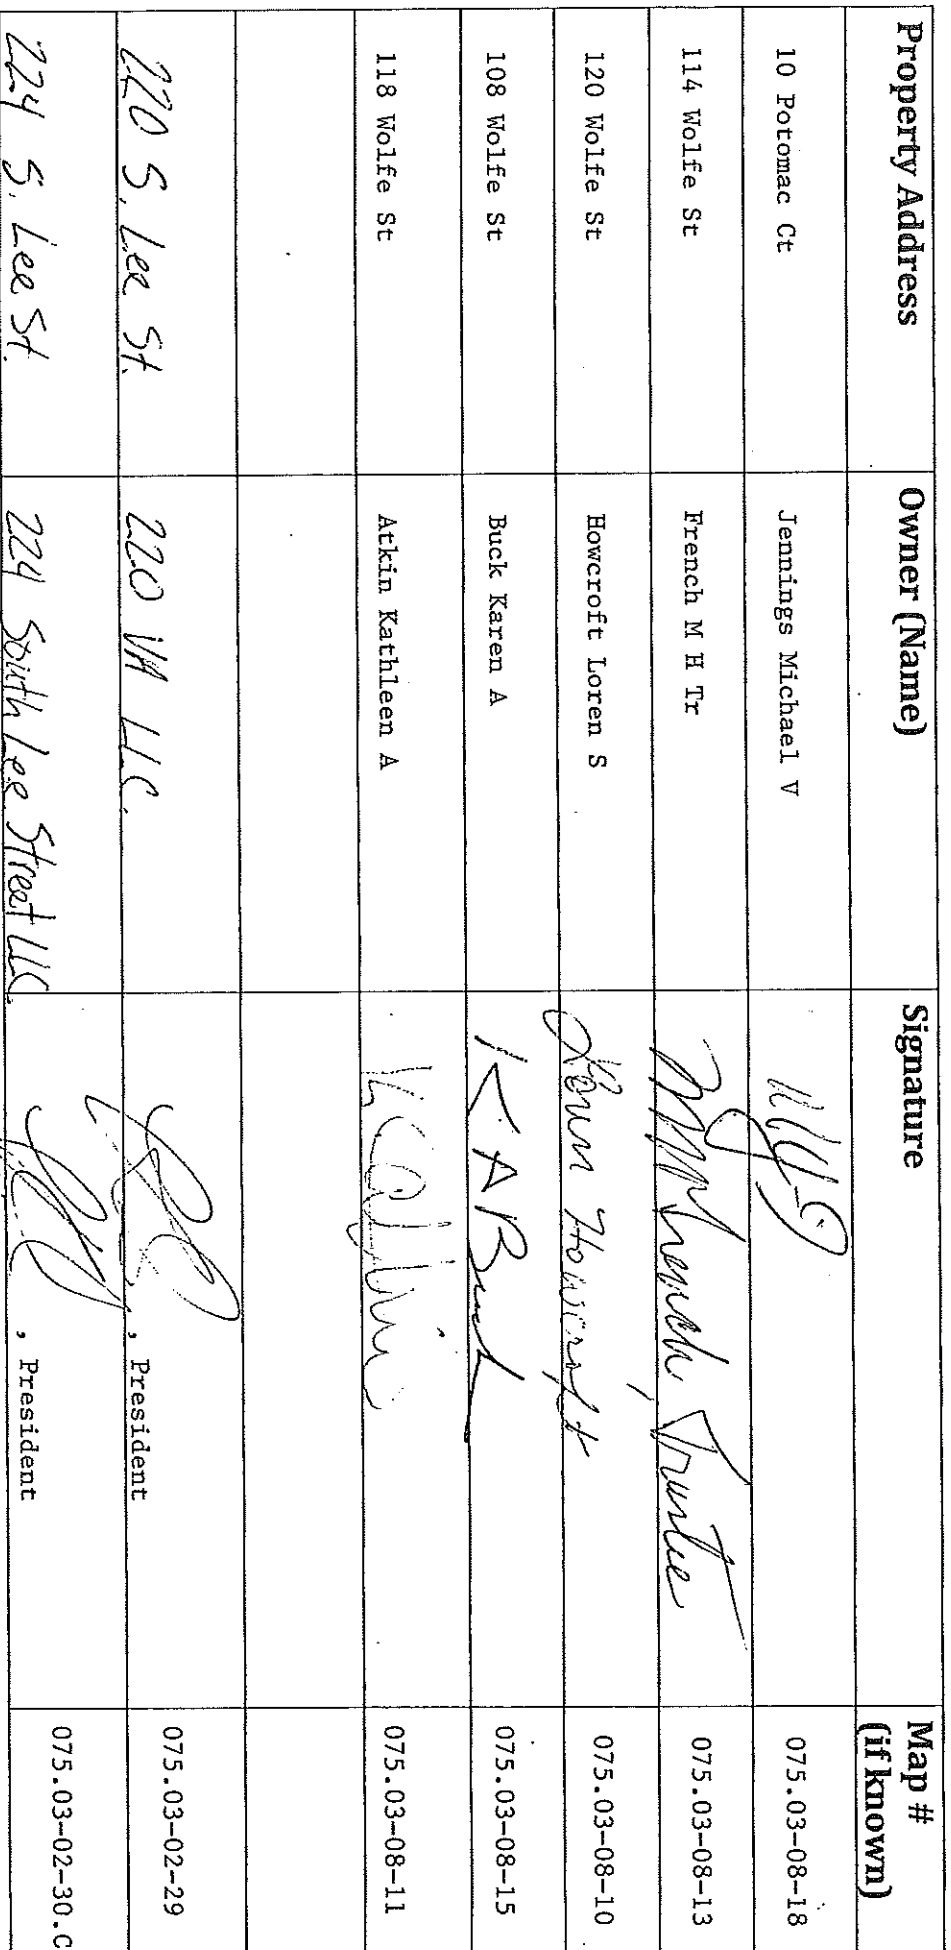 Property Address Owner (Name) Signature Map # (if known)
10 Potomac Ct Jennings Michael V 075.03-08-18
114 Wolfe St French M H Tr M M French, Trustee 075.03-08-13
120 Wolfe St Howcroft Loren S Loren Howcroft 075.03-08-10
108 Wolfe St Buck Karen A K A Buck 075.03-08-15
118 Wolfe St Atkin Kathleen A 075.03-08-11
220 S. Lee St. 220 VA LLC. , President 075.03-02-29
224 S. Lee St. 224 South Lee Street LLC. , President 075.03-02-30.C